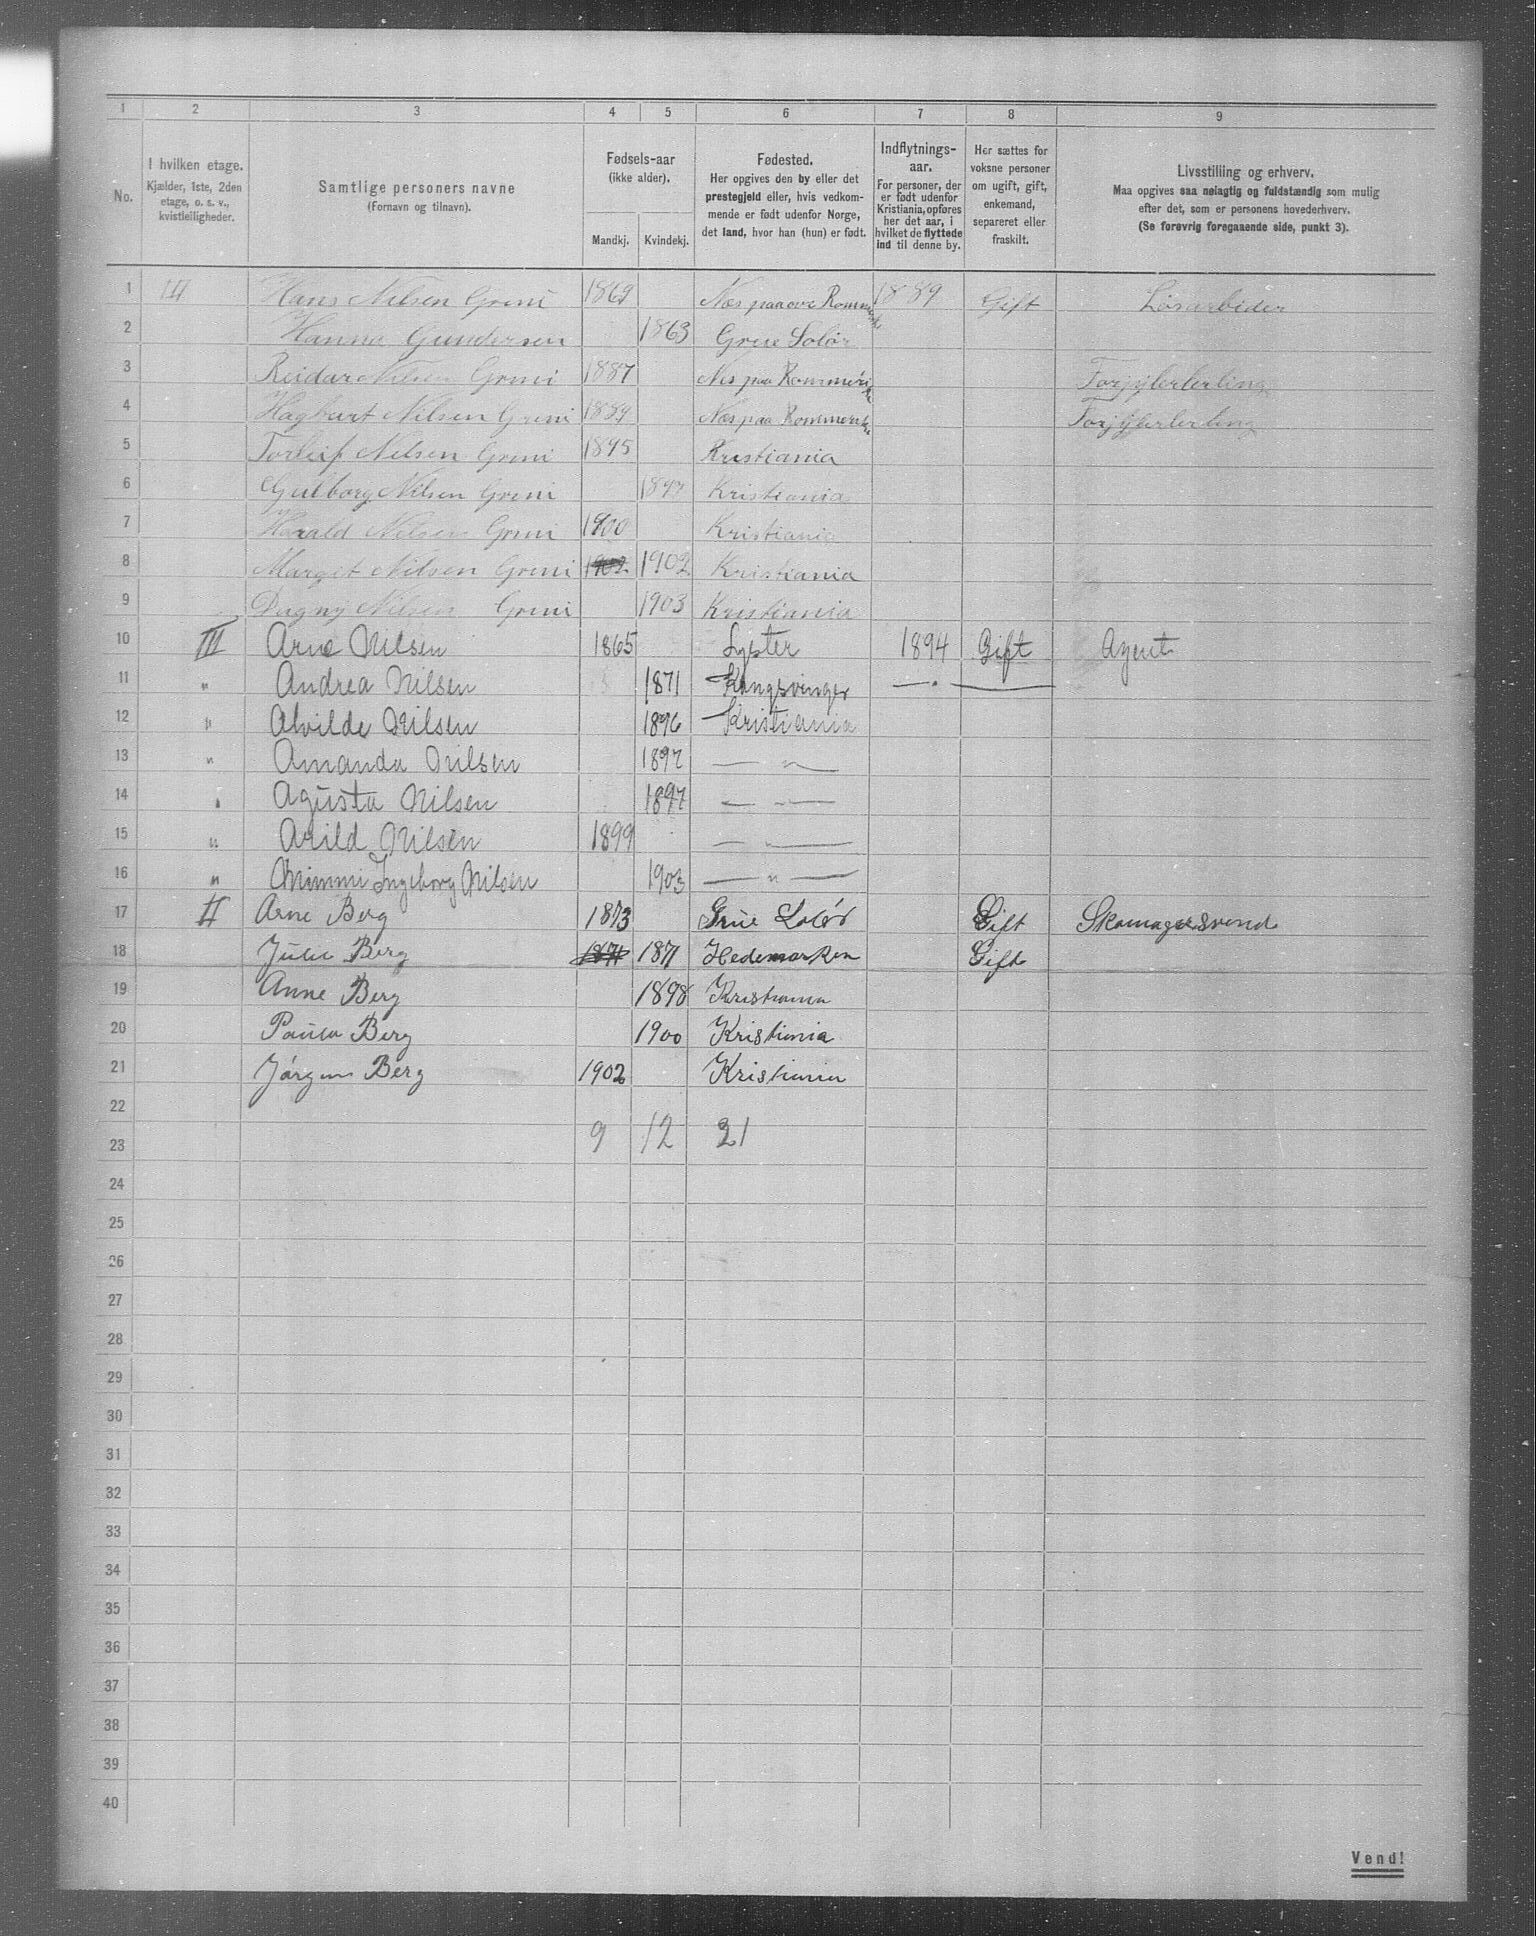 1 2 3 4 5 6 7 8 9
No.
I hvilken etage.
Kjælder, 1ste, 2den
etage, o. s. v.,
kvistleiligheder.
Samtlige personers navne
(Fornavn og tilnavn).
Fødsels-aar
(ikke alder).
Mandkj. Kvindekj.
Fødested.
Her opgives den by eller det
prestegjeld eller, hvis vedkom-
mende er født udenfor Norge,
det land, hvor han (hun) er født.
Indflytnings-
aar.
For personer, der
er født udenfor
Kristiania, opføres
her det aar, i
hvilket de flyttede
ind til denne by.
Her sættes for
voksne personer
om ugift, gift,
enkemand,
separeret eller
fraskilt.
Livsstilling og erhverv.
Maa opgives saa nøiagtig og fuldstændig som mulig
efter det, som er personens hovederhverv.
(Se forøvrig foregaaende side, punkt 3).
1 III Hans Nilsen Greni 1869 Næs paa øvre Romerike 1889 Gift Løsarbeider
2 Hanna Gundersen 1863 Grue Solør
3 Reidar Nilsen Greni 1887 Nes paa Rommerike
4 Hagbart Nilsen Greni 1889 Næs paa Rommerike
5 Torleif Nilsen Greni 1895 Kristiania
6 Gulborg Nilsen Greni 1897 Kristiania
7 Harald Nilsen Greni 1900 Kristiania
8 Margit Nilsen Greni 1902 1902 Kristiania
9 Dagny Nilsen Greni 1903 Kristiania
10 III Arne Nilsen 1865 Lyster 1894 Gift Agent
11 " Andrea Nilsen 1871 Kongsvinger — " —
12 " Alvilde Nilsen 1896 Kristiania
13 " Amanda Nilsen 1897 — " —
14 " Agusta Nilsen 1897 — " —
15 " Arild Nilsen 1899 — " —
16 " Mimmi Ingeborg Nilsen 1903 — " —
17 II Arne Berg 1873 Grue Solør Gift Skomagersvend
18 Julie Berg 1871 1871 Hedemarken Gift
19 Anne Berg 1898 Kristiania
20 Paula Berg 1900 Kristiania
21 Jørgen Berg 1902 Kristiania
22
23 9 12 21
24
25
26
27
28
29
30
31
32
33
34
35
36
37
38
39
40
Vend!